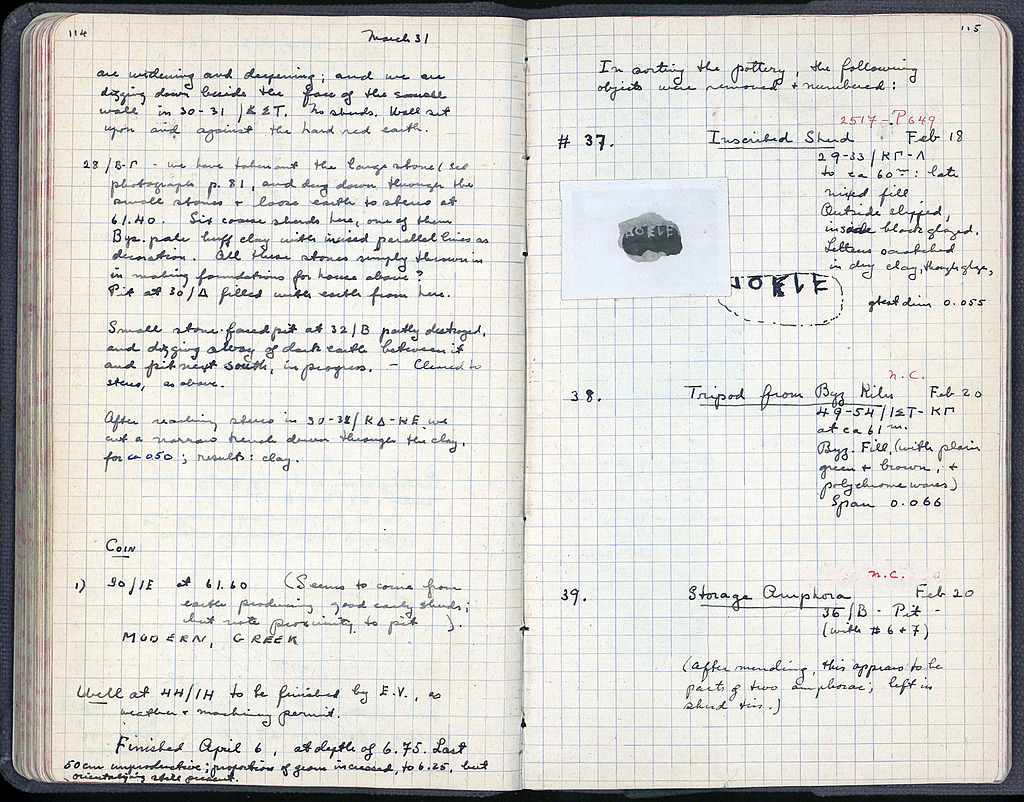 114
March 31
are widening and deepening; and we are
digging down beside the face of the small
wall in 30-31 / ΣΤ. No sherds. Wall set
upon and against the hard red earth.
28/B-Γ - we have taken out the large stone (see
photograph p. 81, and dug down through the
small stones + loose earth to stereo at
61.40. Six coarse sherds here, one of them
Byz. pale buff clay with incised parallel lines as
decoration. All these stones simply thrown in
in making foundations for house above?
Pit at 30/Δ filled with earth from here.
Small stone-faced pit at 32/B partly destroyed,
and digging away of dark earth between it
and pit next south, in progress. - Cleared to
stereo, as above.
After reaching stereo in 30-32/ΚΔ-ΚΕ we
cut a narrow trench down through the clay,
for ca 0.50; results: clay.
COIN
1) 30/ΙΕ at 61.60 (Seems to come from
earth producing good early sherds;
but note proximity to pit ).
MODERN, GREEK
Well at 44/ΙΗ to be finished by E.V., as
weather + machinery permit.
Finished April 6, at depth of 6.75. Last
50 cm unproductive; proportion of geom increased, to 6.25, but
orientalizing still present.
115
In sorting the pottery, the following
objects were removed + numbered:
2517-P649
# 37. Inscribed Sherd Feb 18
29-33/ΚΓ-Λ
to ca 60 m: late
mixed fill
Outside slipped,
inside black glazed.
Letters scratched
in dry clay, through glaze,
gtest dim 0.055
N.C.
38. Tripod from Byz Kiln Feb 20
49-54/ΙΣΤ-ΚΓ
at ca 61 m.
Byz. Fill, (with plain
green + brown, +
polychrome wares)
Span 0.066
N.C.
39. Storage Amphora Feb 20
36/B - Pit -
(with # 6 + 7)
(After mending, this appears to be
parts of two amphorae; left in
sherd tins.)